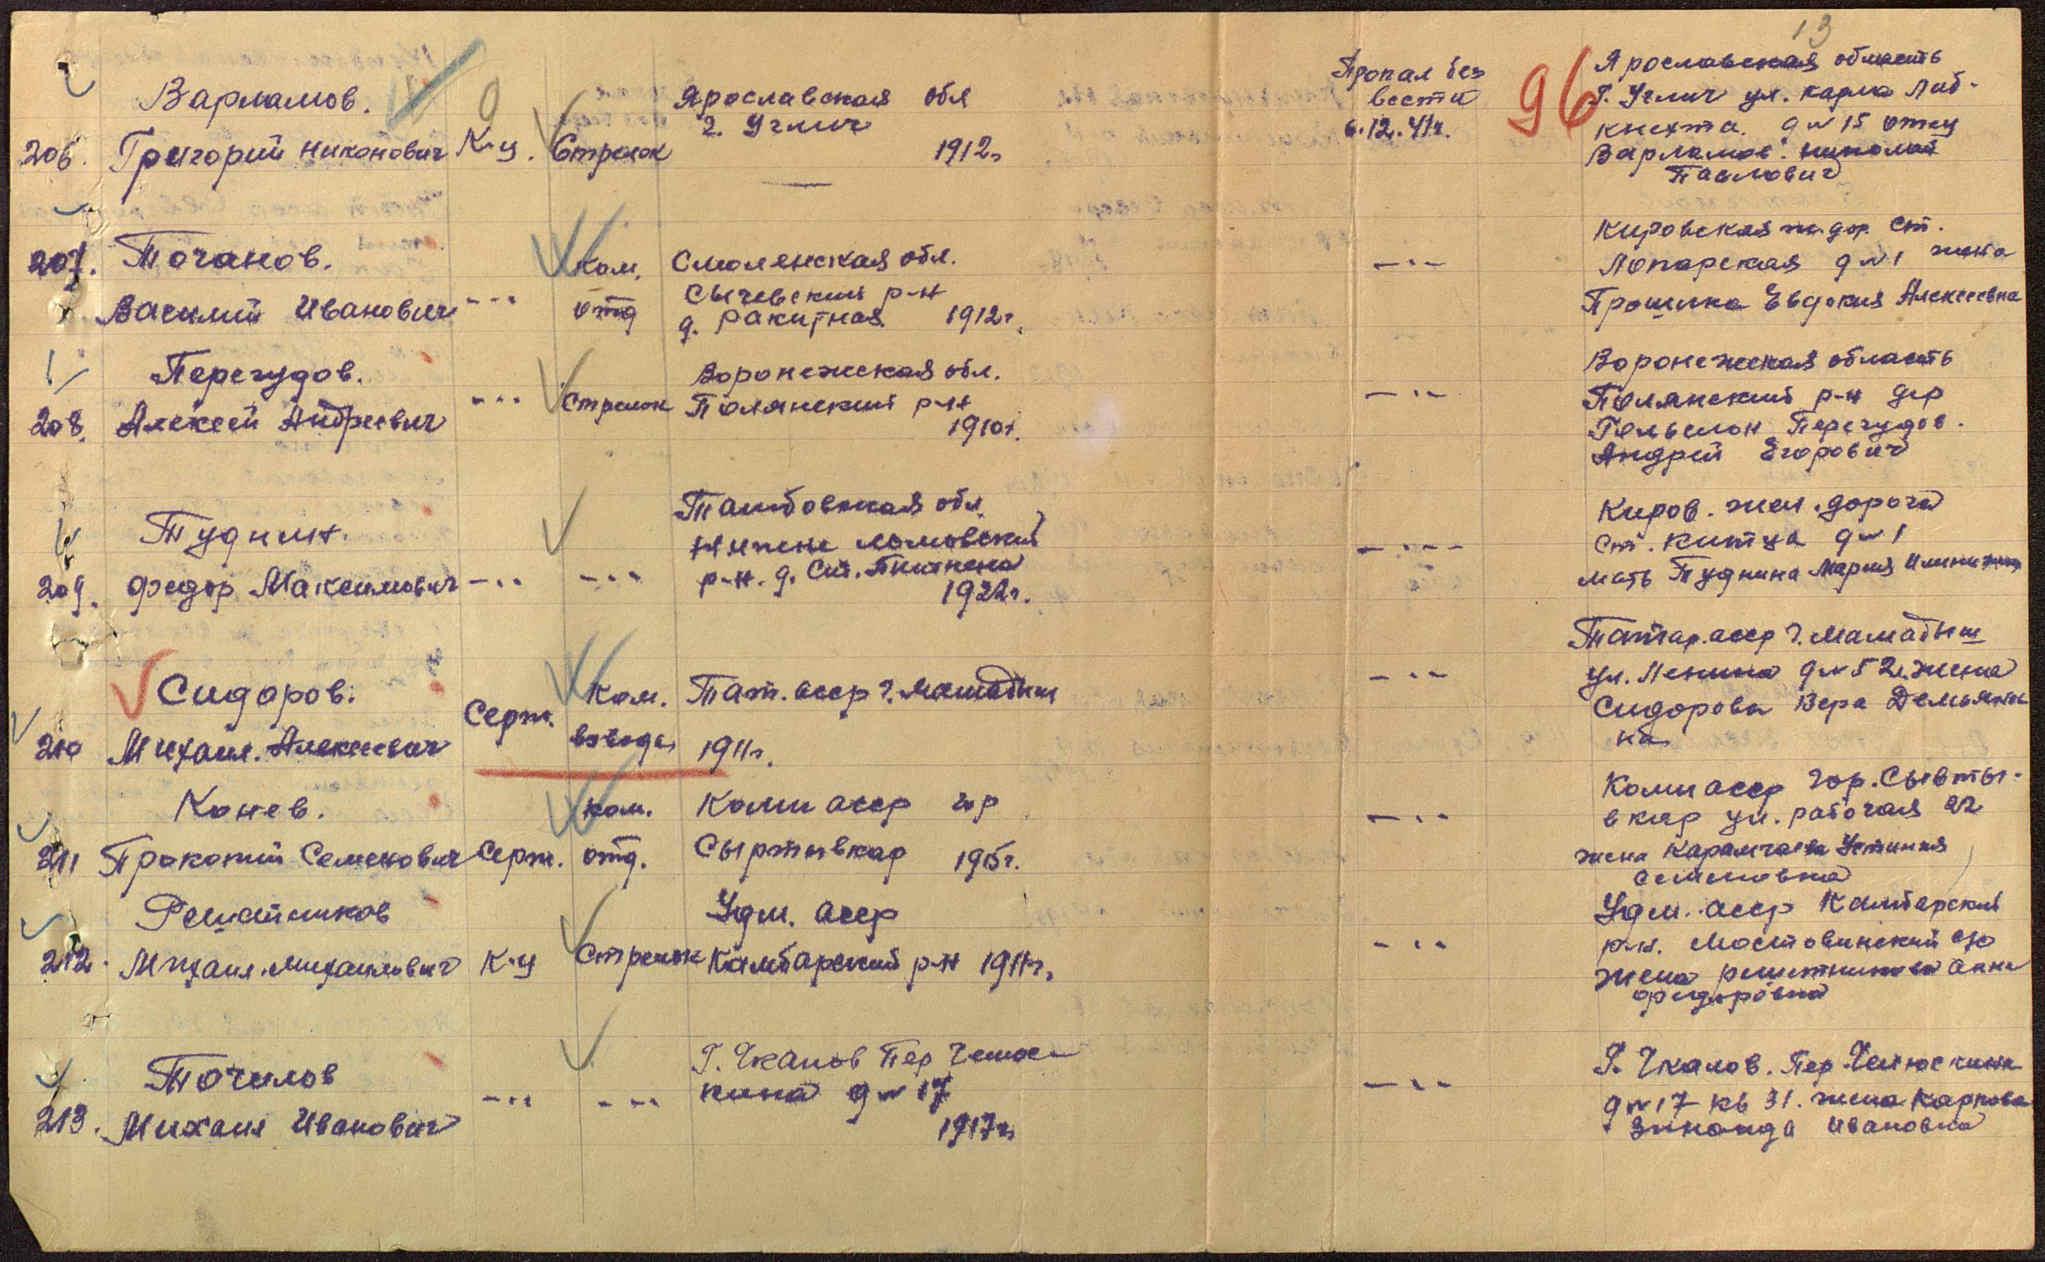 13
96
Варламов.
206. Григорий Никонович К-ц. Стрелок
Ярославская обл
г. Углич
1912г
Пропал без
вести
6.12.41г.
Ярославская область
Г. Углич ул. Карла Либ-
кнехта. д № 15 отец
Варламов. Николай
Павлович
207. Точанов.
Василий Иванович -"- Ком.
отд
Смоленская обл.
Сычевский р-н
д. Ракитная 1912г.
-"-
Кировская ж. дор. Ст.
Лопарская д № 1 жена
Трошина Евдокия Алексеевна
Перегудов.
208. Алексей Андреевич -"- Стрелок
Воронежская обл.
Полянский р-н
1910г.
-"-
Воронежская область
Полянский р-н дер
Перегудов.
Андрей Егорович
Туднин.
209. Федор Максимович -"- -"-
Тамбовская обл.
Нижне ломовский
р-н. д. Ст.
1922г.
-"-
Киров. жел. дорога
ст. Китца д № 1
мать Туднина Мария
Сидоров.
210 Михаил. Алексеевич Серж. Ком.
взвода
Тат. асср г. Мамадыш
1911г.
-"-
Татар. асср г. Мамадыш
ул. Ленина д № 52. жена
Сидорова Вера Демьянов
на
Конев.
211 Прокопий Семенович Серж. ком.
отд.
Коми асср гор
Сыктывкар 1915г.
-"-
Коми асср гор. Сывты-
вкар ул. рабочая 22
жена Карамчаева Устиния
семеновна
Решатников
212. Михаил. Михаилович К-ц Стрелок
Удм. асср
Камбарский р-н 1911г.
-"-
Удм. асср Камбарский
р-н. Мостовинский с/с
жена решетникова Анна
федоровна
Точилов
213. Михаил Иванович -"- -"-
Г. Чкалов Пер Челюс-
кина д № 17
1917г.
-"-
Г. Чкалов. Пер. Челюскина
д № 17 кв 31. жена Карпова
Зинаида Ивановна